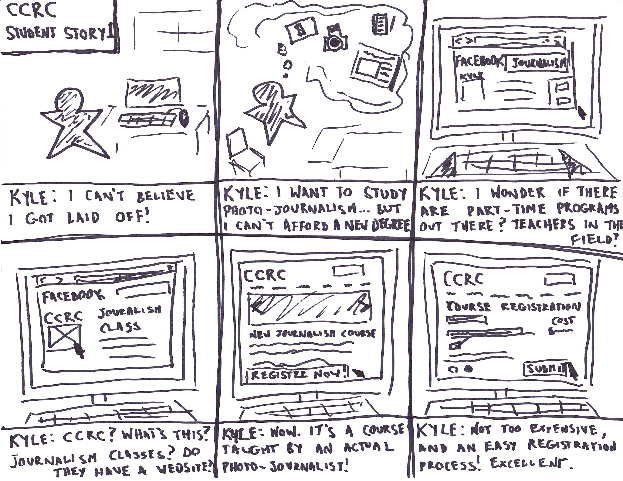 CCRC
STUDENT STORY 1
KYLE: I CAN'T BELIEVE
I GOT LAID OFF!
KYLE: I WANT TO STUDY
PHOTO-JOURNALISM... BUT
I CAN'T AFFORD A NEW DEGREE
FACEBOOK JOURNALISM
KYLE
KYLE: I WONDER IF THERE
ARE PART-TIME PROGRAMS
OUT THERE? TEACHERS IN THE
FIELD?
FACEBOOK
CCRC JOURNALISM
CLASS
KYLE: CCRC? WHAT'S THIS?
JOURNALISM CLASSES? DO
THEY HAVE A WEBSITE?
CCRC
NEW JOURNALISM COURSE
REGISTER NOW!
KYLE: WOW. IT'S A COURSE
TAUGHT BY AN ACTUAL
PHOTO-JOURNALIST!
CCRC
COURSE REGISTRATION
COST
SUBMIT
KYLE: NOT TOO EXPENSIVE,
AND AN EASY REGISTRATION
PROCESS! EXCELLENT.